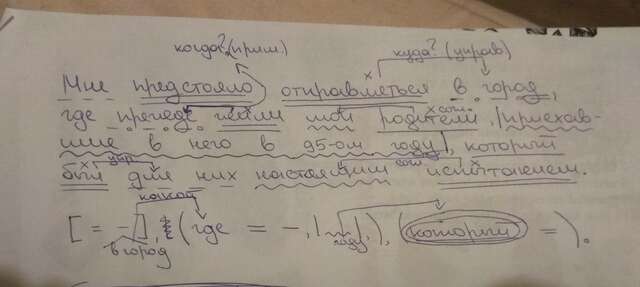 когда? (прим) куда? (управ)
Мне предстояло отправляться в город,
где прежде жили мои родители, приехав-
х согл.
шие в него в 95-ом году, который
х упр согл х
был для них настоящим испытанием.
какой
[ = – ], (где = –, | году |, ), ( который = ).
в город